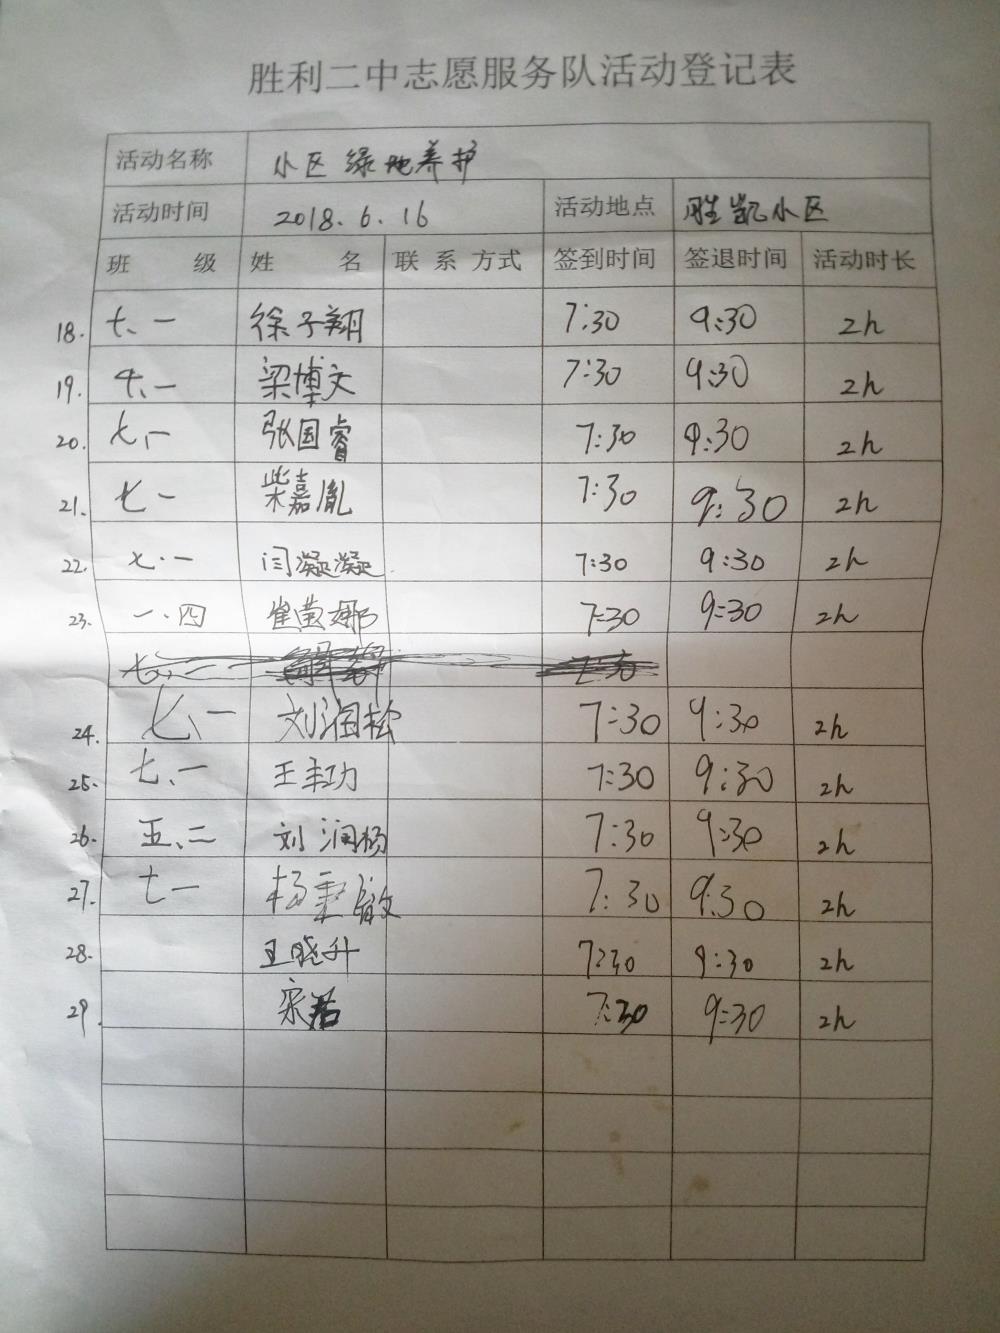 胜利二中志愿服务队活动登记表
活动名称 小区绿地养护
活动时间 2018.6.16 活动地点 胜凯小区
班级 姓名 联系方式 签到时间 签退时间 活动时长
18. 七、一 徐子翔 7:30 9:30 2h
19. 七、一 梁博文 7:30 9:30 2h
20. 七、一 张国睿 7:30 9:30 2h
21. 七一 柴嘉胤 7:30 9:30 2h
22. 七.一 闫凝凝 7:30 9:30 2h
23. 一、四 崔莹娜 7:30 9:30 2h
24. 七、一 刘润松 7:30 9:30 2h
25. 七、一 王丰功 7:30 9:30 2h
26. 五、二 刘润杨 7:30 9:30 2h
27. 七一 杨秉毅 7:30 9:30 2h
28. 王晓升 7:30 9:30 2h
29. 宋若 7:30 9:30 2h